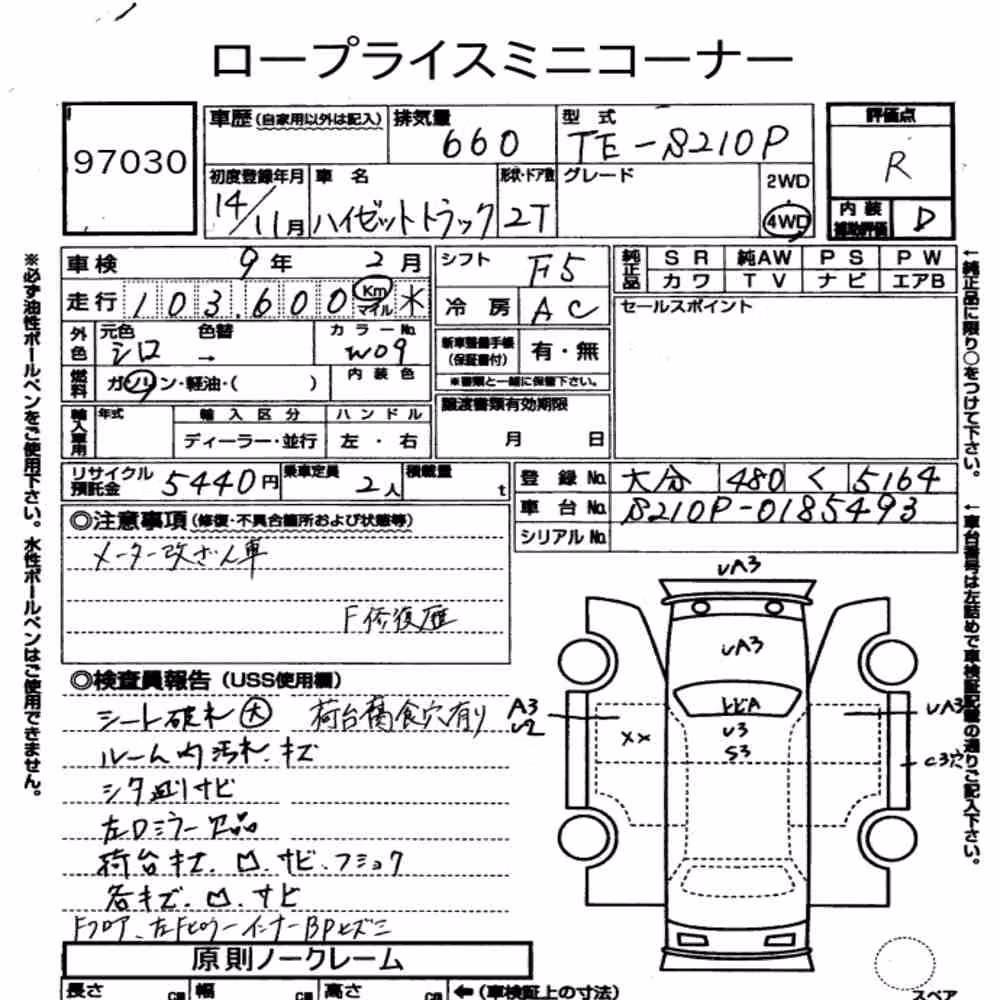 ロープライスミニコーナー
97030
車歴 (自家用以外は記入)
排気量
660
型式
TE-S210P
評価点
R
初度登録年月
14/11月
車名
ハイゼットトラック
形状・ドア数
2T
グレード
2WD
4WD
内装
補助評価
D
車検 9年 2月
シフト
F5
純正品
SR 純AW PS PW
カワ TV ナビ エアB
走行 103,600 Km マイル
冷房 AC
セールスポイント
外色
元色 シロ
色替 →
カラーNo.
W09
新車整備手帳
(保証書付)
有・無
※書類と一緒に保管下さい。
燃料
ガソリン・軽油・( )
内装色
輸入車用
年式
輸入区分
ハンドル
ディーラー・並行
左・右
譲渡書類有効期限
月 日
リサイクル
預託金
5440円
乗車定員
2人
積載量
t
登録No.
大分 480 く 5164
車台No.
S210P-0185493
シリアルNo.
◎注意事項 (修復・不具合箇所および状態等)
メーター改ざん車
F修復歴
◎検査員報告 (USS使用欄)
シート破れ大 荷台腐食穴有り
ルーム内汚れ.キズ
シタ回リサビ
左Dミラー欠品
荷台キズ.凹.サビ.フショク
各キズ.凹.サビ
Fフロア、左Fピラーインナー BPヒズミ
原則ノークレーム
長さ cm 幅 cm 高さ cm
←(車検証上の寸法)
スペア
UA3
UA3
トビA
U3
S3
A3
U2
××
UA3
C3穴
※必ず油性ボールペンをご使用下さい。水性ボールペンはご使用できません。
←純正品に限り○をつけて下さい。
←車台番号は左詰めで車検証記載の通りご記入下さい。